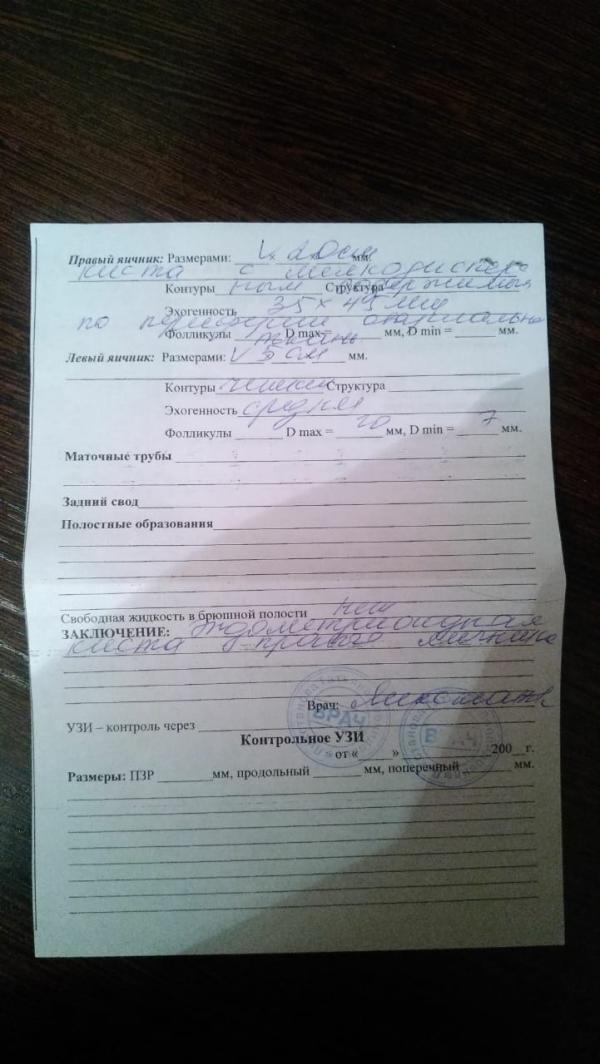 Правый яичник: Размерами: V 20 см мм.
киста с мелкодисперс
Контуры ным содержимым Структура
Эхогенность 35 х 45 мм
по периферии
Фолликулы D max мм, D min = мм.
Левый яичник: Размерами: V 5 см мм.
Контуры четкие Структура
Эхогенность средняя
Фолликулы D max = 10 мм, D min = 7 мм.
Маточные трубы
Задний свод
Полостные образования
Свободная жидкость в брюшной полости нет
ЗАКЛЮЧЕНИЕ: Эндометриоидная
киста правого яичника
Врач:
ВРАЧ
УЗИ – контроль через
Контрольное УЗИ
ВРАЧ
от « » 200 г.
Размеры: ПЗР мм, продольный мм, поперечный мм.